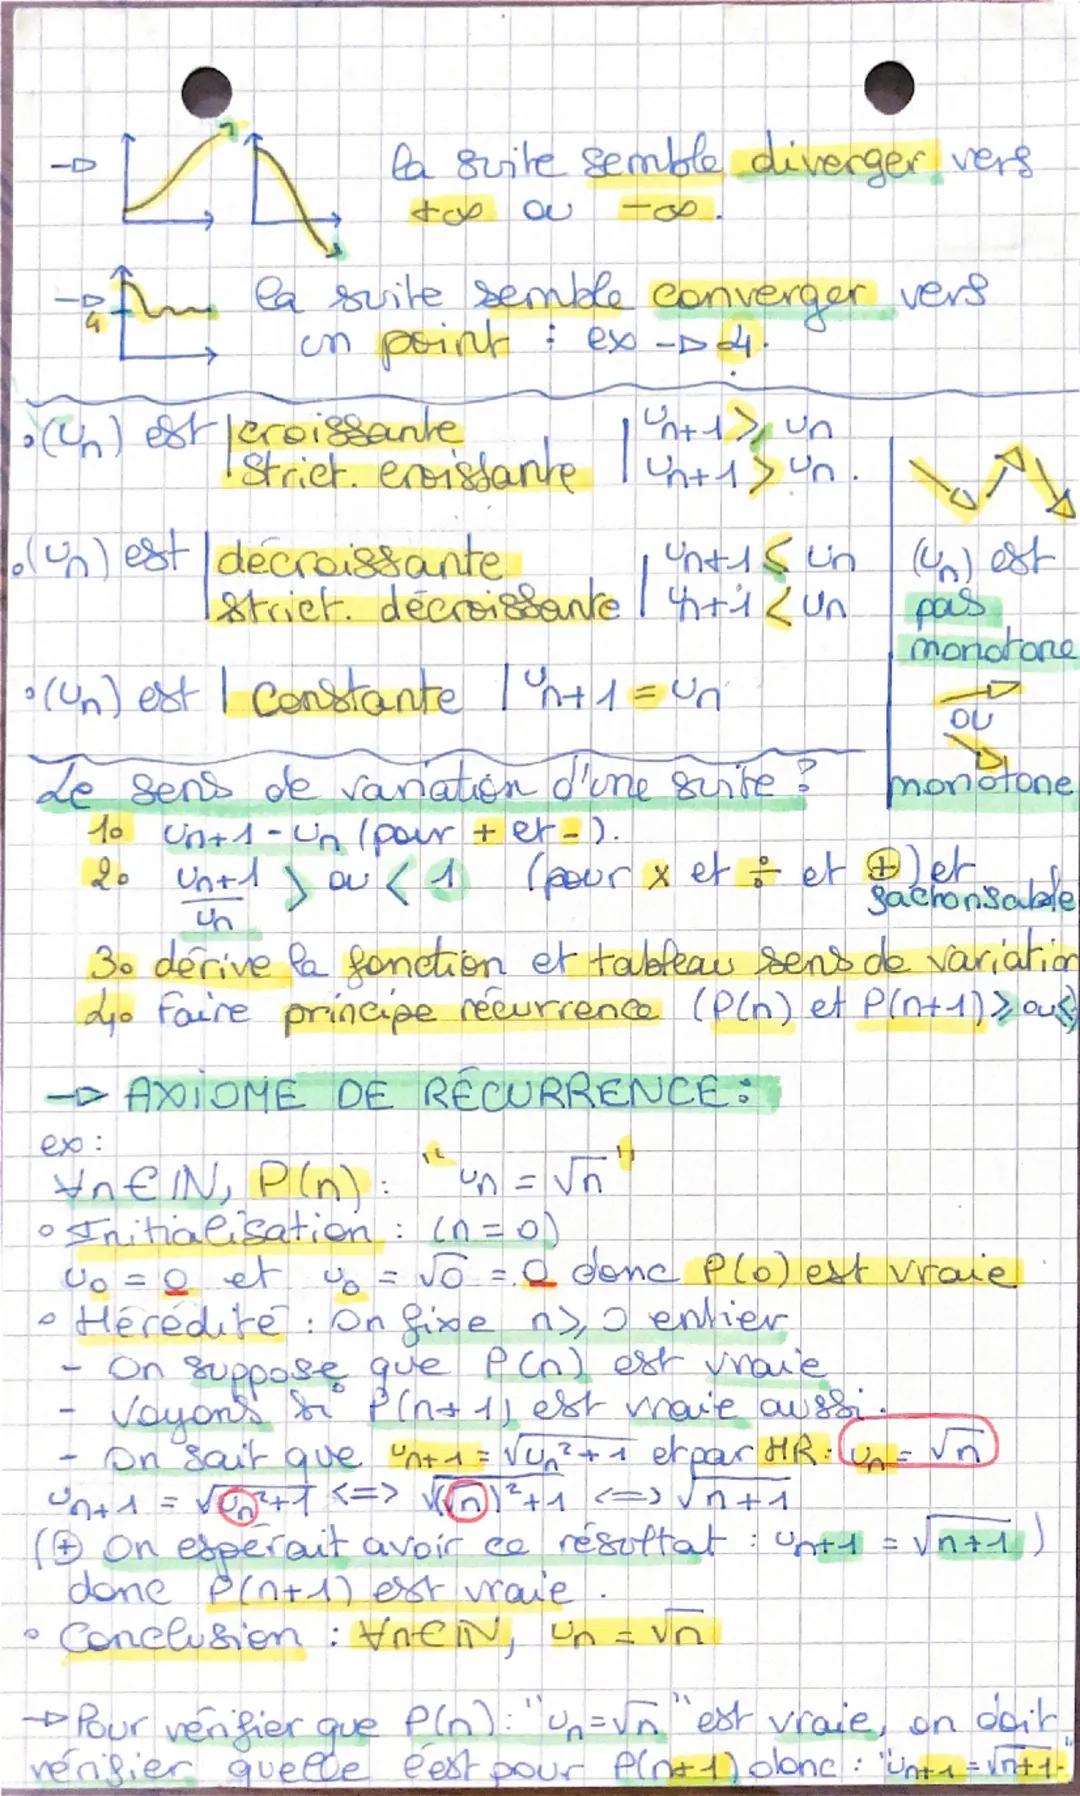 la suite semble diverger vers
+∞ ou -∞.
4
la suite semble converger vers
un point : ex → 4.
• (Un) est | croissante | Un+1 ⩾ Un
| Strict. croissante | Un+1 > Un.
• (Un) est | décroissante | Un+1 ⩽ Un
| strict. décroissante | Un+1 < Un
• (Un) est | Constante | Un+1 = Un
(Un) est
pas
monotone
ou
monotone
Le sens de variation d'une suite ?
1. Un+1 - Un (pour + et -).
2. Un+1/Un > ou < 1 (pour x et ÷ et ⊕) et
factorisable
3. dérive la fonction et tableau sens de variation
4. Faire principe récurrence (P(n) et P(n+1) ⩾ ou ⩽)
→ AXIOME DE RÉCURRENCE :
ex :
∀n∈ℕ, P(n) : "Un = √n"
• Initialisation : (n = 0)
U0 = 0 et U0 = √0 = 0 donc P(0) est vraie
• Hérédité : On fixe n ⩾ 0 entier
- On suppose que P(n) est vraie
- Voyons si P(n+1) est vraie aussi.
- On sait que Un+1 = √(Un²+1) et par HR : Un = √n
Un+1 = √(Un²+1) <=> √((√n)²+1 <=> √n+1
(⊕ On espérait avoir ce résultat : Un+1 = √n+1)
donc P(n+1) est vraie.
• Conclusion : ∀n∈ℕ, Un = √n
→ Pour vérifier que P(n) : "Un=√n" est vraie, on doit
vérifier quelle est pour P(n+1) donc : "Un+1 = √n+1"